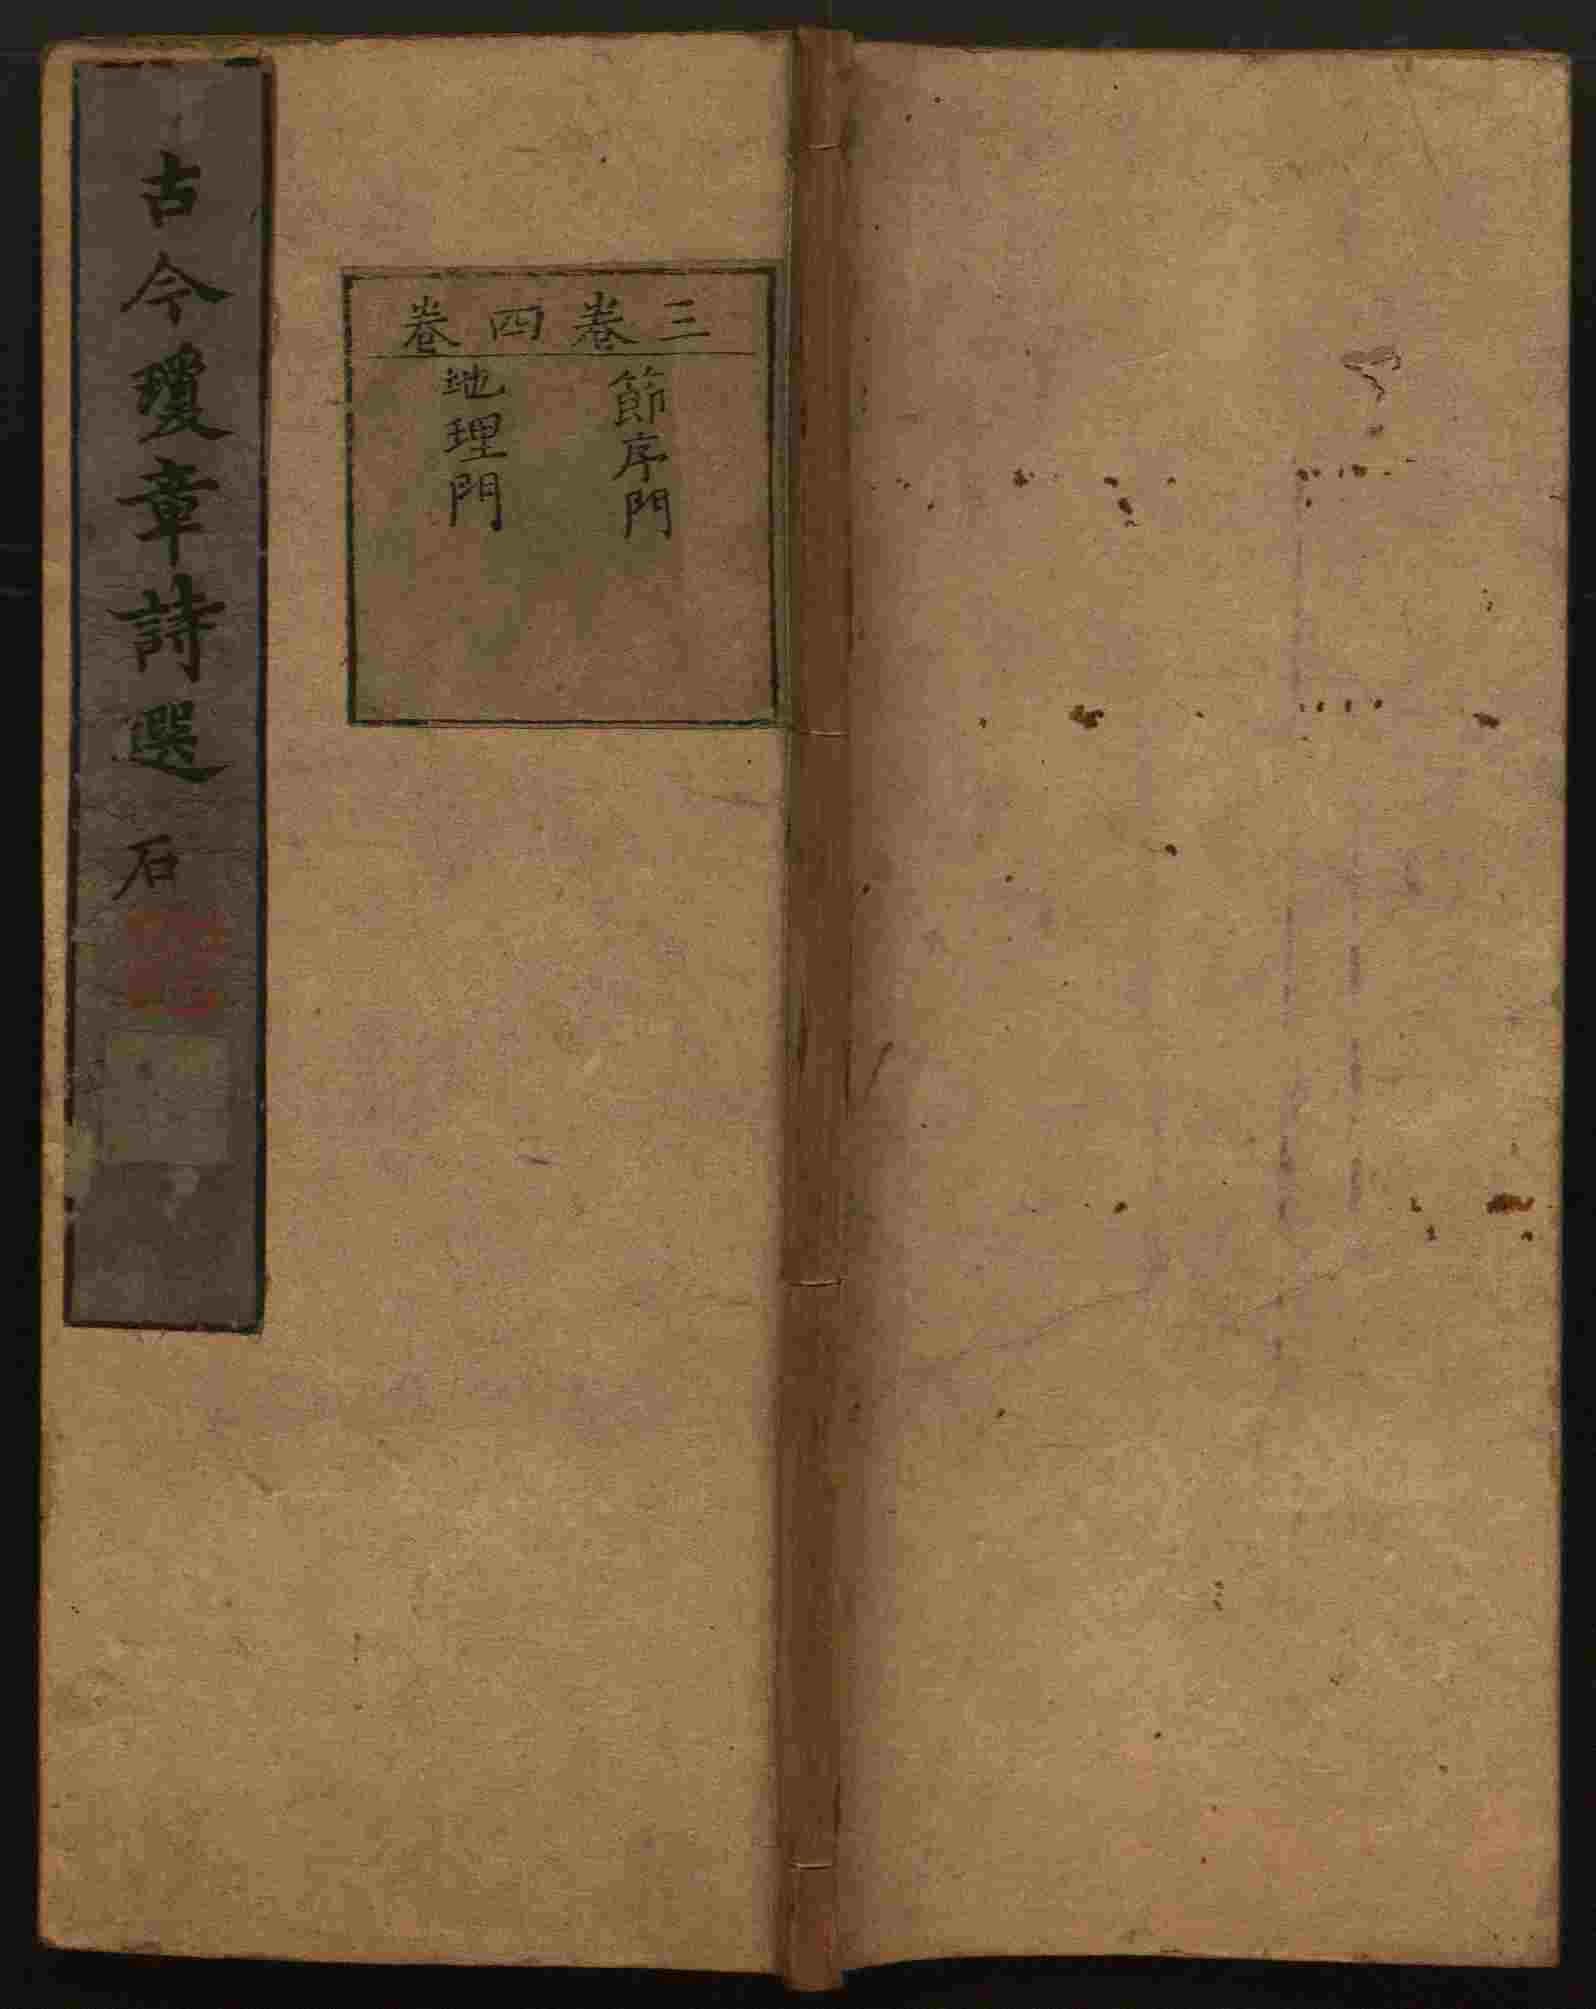 古今瓊章詩選 石
三卷四卷
節序門
地理門